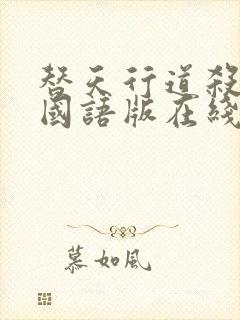 替天行道殺
國語版在綫
慕如風